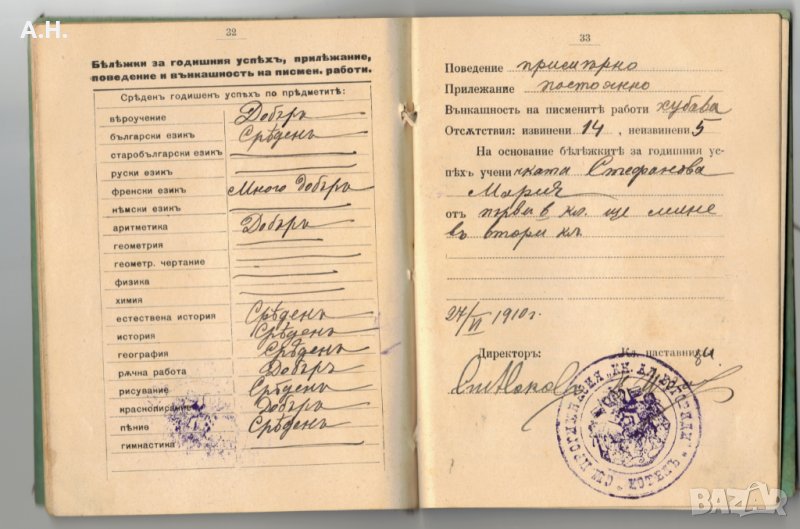 А.Н.
32
Бѣлѣжки за годишния успѣхъ, прилѣжание,
поведение и вънкашность на писмен. работи.
Срѣденъ годишенъ успѣхъ по прѣдметитѣ:
вѣроучение Добъръ
български езикъ Срѣденъ
старобългарски езикъ
руски езикъ
френски езикъ Много добъръ
нѣмски езикъ
аритметика Добъръ
геометрия
геометр. чертание
физика
химия
естествена история Срѣденъ
история Срѣденъ
география Срѣденъ
рѫчна работа Добъръ
рисувание Срѣденъ
краснописание Добъръ
пѣние Срѣденъ
гимнастика
33
Поведение примѣрно
Прилежание постоянно
Вънкашность на писменитѣ работи хубава
Отсѫтствия: извинени 14, неизвинени 5
На основание бѣлѣжкитѣ за годишния ус-
пѣхъ ученичката Стефанова
Мария
отъ първи в кл. ще мине
въ втори кл.
27/VI 1910 г.
Директоръ: Кл. наставница
BAZAR